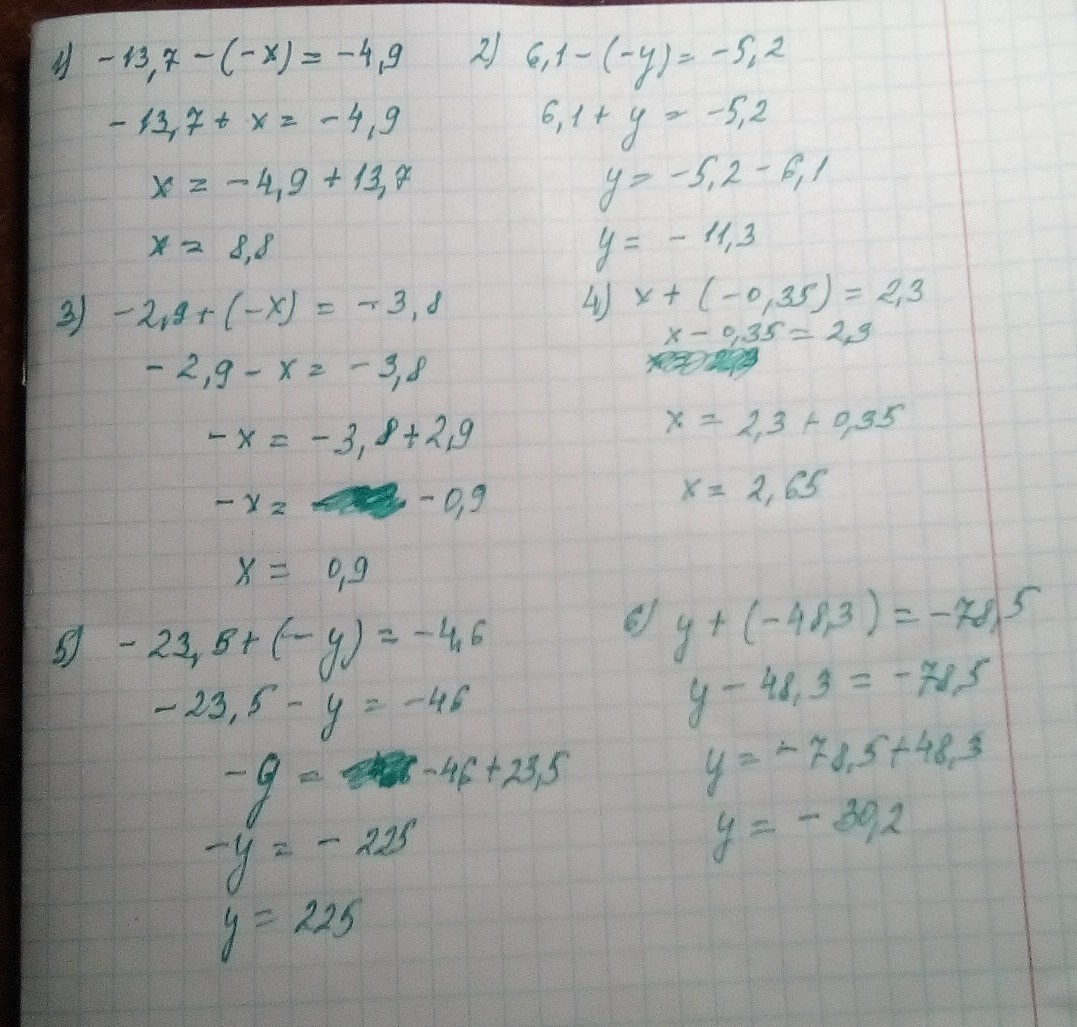 1) -13,7 - (-x) = -4,9
-13,7 + x = -4,9
x = -4,9 + 13,7
x = 8,8
2) 6,1 - (-y) = -5,2
6,1 + y = -5,2
y = -5,2 - 6,1
y = - 11,3
3) -2,9 + (-x) = -3,8
-2,9 - x = -3,8
-x = -3,8 + 2,9
-x = -0,9
x = 0,9
4) x + (-0,35) = 2,3
x - 0,35 = 2,3
x = 2,3 + 0,35
x = 2,65
5) -23,5 + (-y) = -4,6
-23,5 - y = -46
-y = -46 + 23,5
-y = - 225
y = 225
6) y + (-48,3) = -78,5
y - 48,3 = -78,5
y = -78,5 + 48,3
y = - 30,2